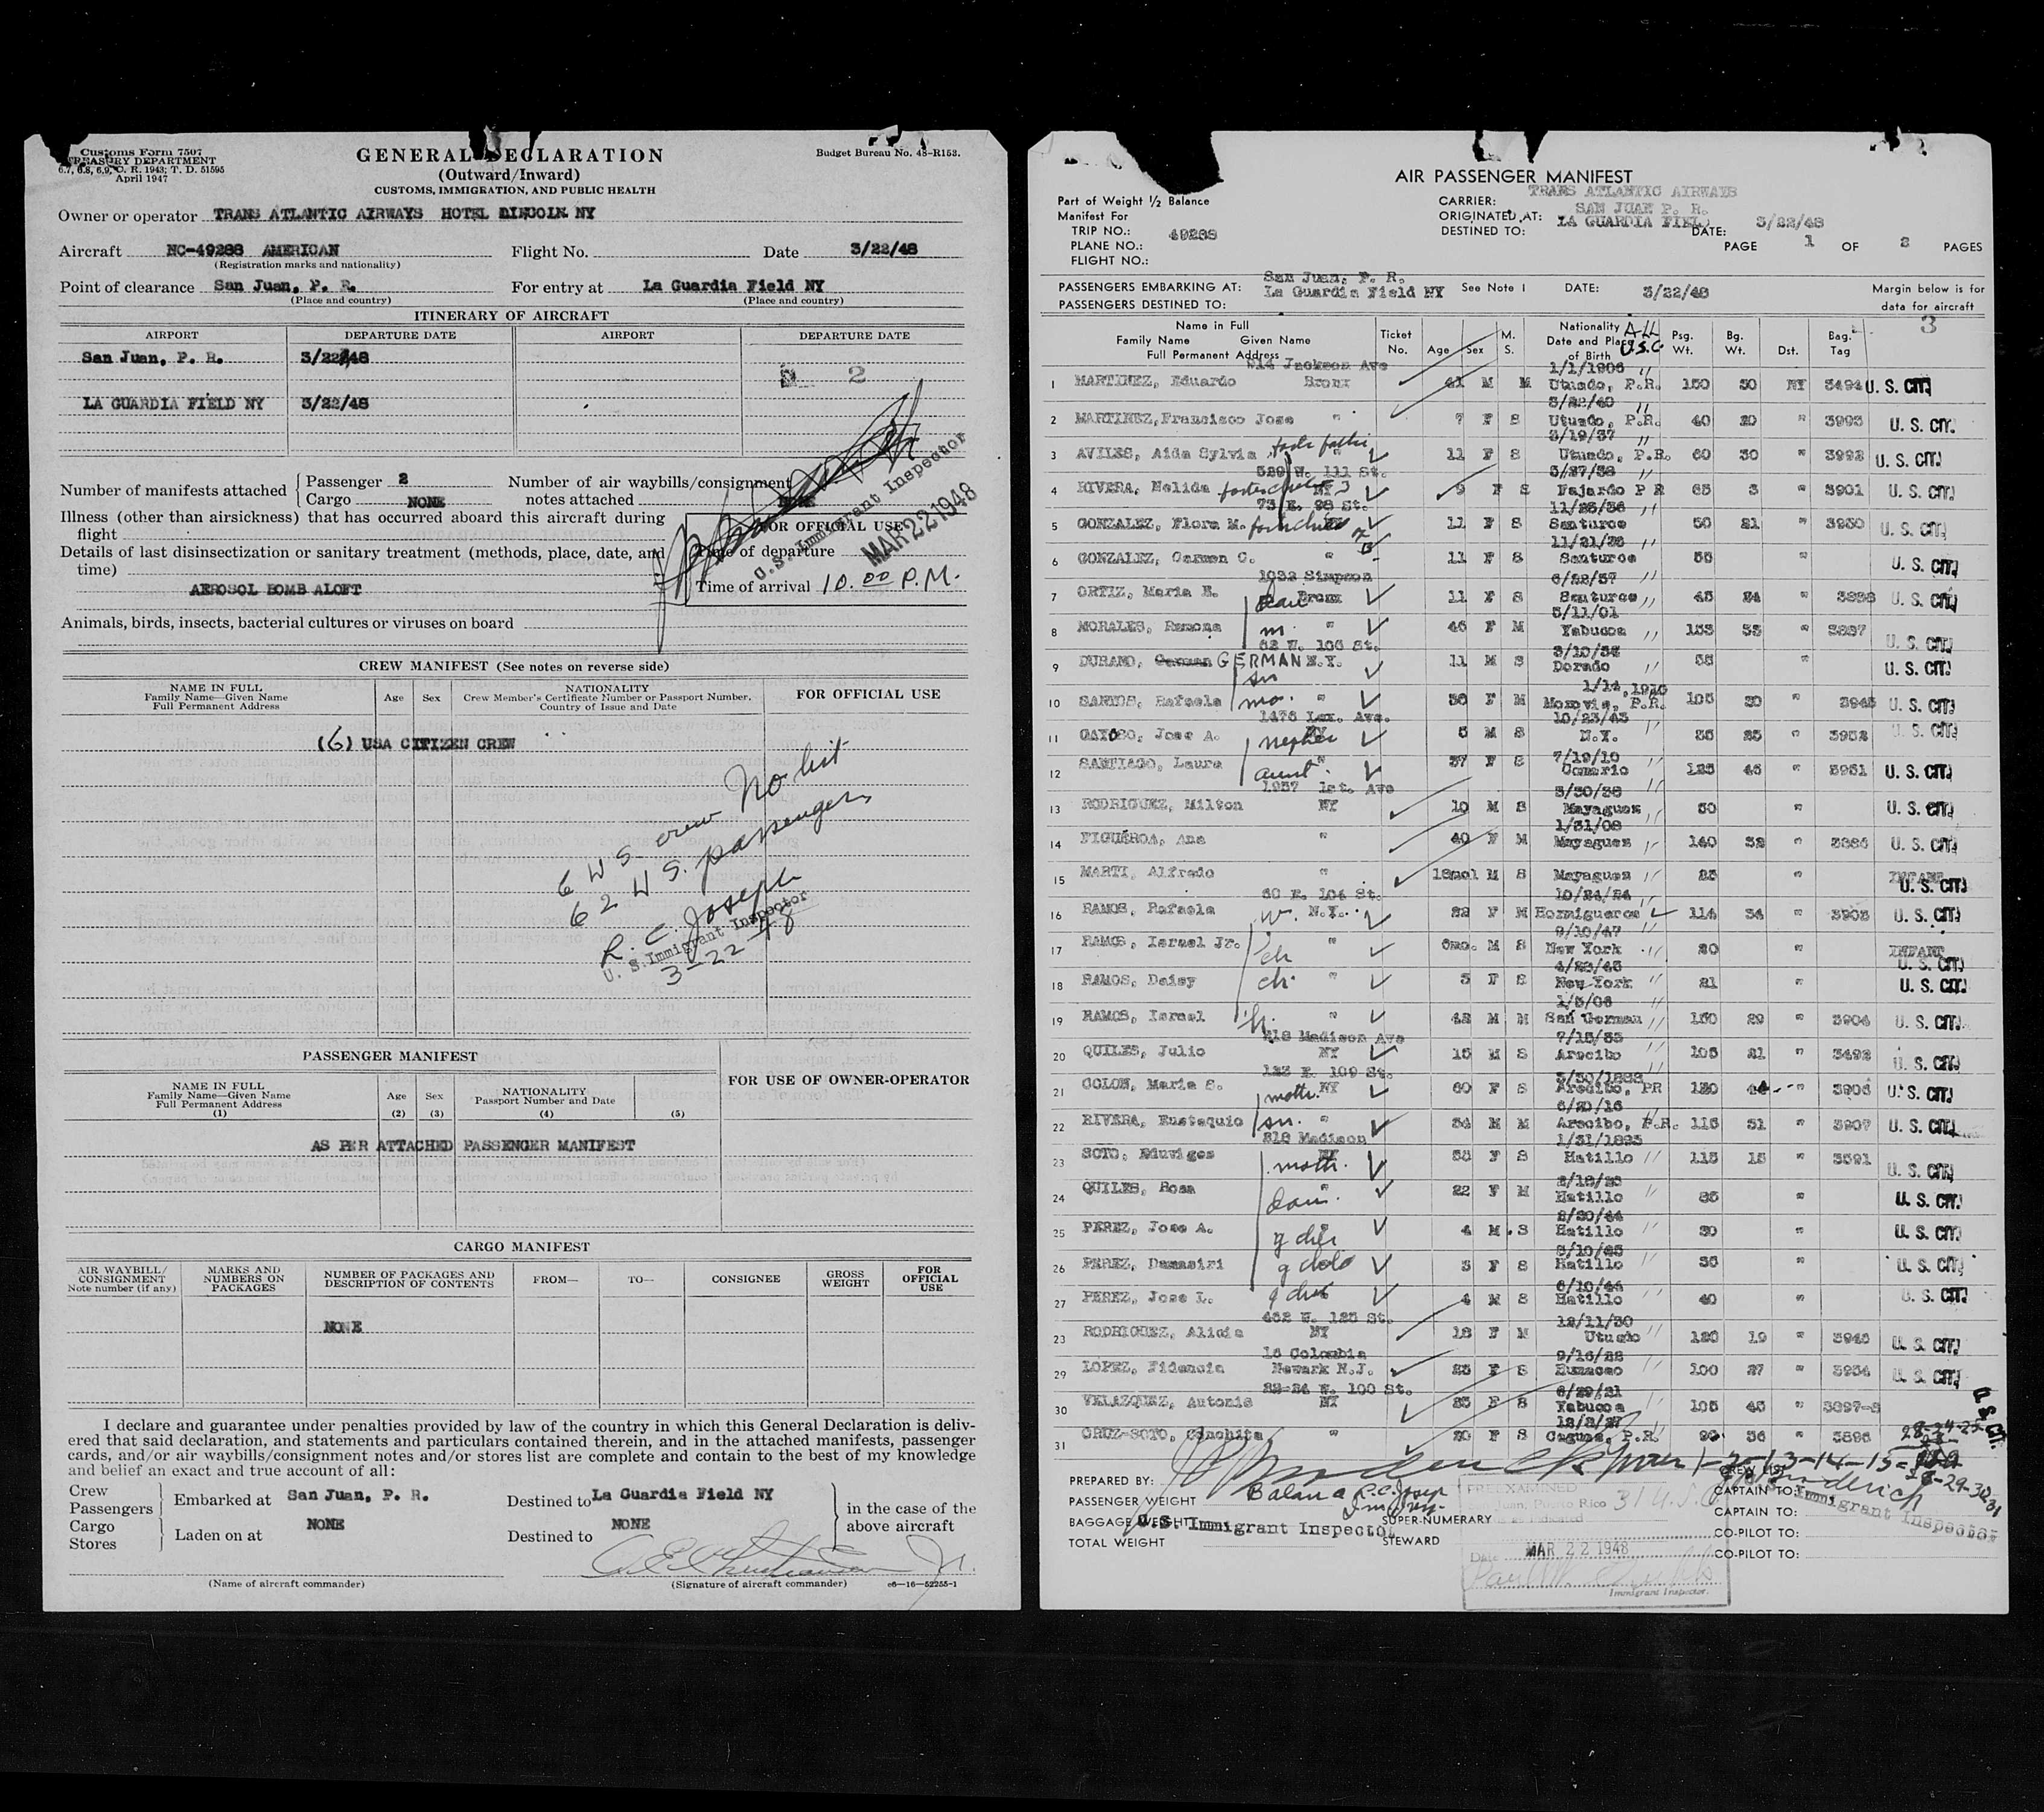 Customs Form 7507
TREASURY DEPARTMENT
6.7, 6.8, 6.9, C. R. 1943; T. D. 51595
April 1947
GENERAL DECLARATION
(Outward/Inward)
CUSTOMS, IMMIGRATION, AND PUBLIC HEALTH
Budget Bureau No. 48-R153.
Owner or operator TRANS ATLANTIC AIRWAYS HOTEL LINCOLN NY
Aircraft NC-49288 AMERICAN Flight No. Date 3/22/48
(Registration marks and nationality)
Point of clearance San Juan, P. R. For entry at La Guardia Field NY
(Place and country) (Place and country)
ITINERARY OF AIRCRAFT
AIRPORT DEPARTURE DATE AIRPORT DEPARTURE DATE
San Juan, P. R. 3/22/48
2
LA GUARDIA FIELD NY 3/22/48
Number of manifests attached Passenger 2 Cargo NONE Number of air waybills/consignment notes attached
Illness (other than airsickness) that has occurred aboard this aircraft during flight
Details of last disinsectization or sanitary treatment (methods, place, date, and time)
AEROSOL BOMB ALOFT
FOR OFFICIAL USE
Time of departure
Time of arrival 10.00 P.M.
U.S. Immigrant Inspector
MAR 22 1948
Animals, birds, insects, bacterial cultures or viruses on board
CREW MANIFEST (See notes on reverse side)
NAME IN FULL
Family Name—Given Name
Full Permanent Address
Age Sex
NATIONALITY
Crew Member's Certificate Number or Passport Number.
Country of Issue and Date
FOR OFFICIAL USE
(6) USA CITIZEN CREW
6 U S crew No list
62 U S. passengers
R. C. Joseph
U. S. Immigrant Inspector
3-22-48
PASSENGER MANIFEST
NAME IN FULL
Family Name—Given Name
Full Permanent Address
(1)
Age (2) Sex (3)
NATIONALITY
Passport Number and Date
(4) (5)
FOR USE OF OWNER-OPERATOR
AS PER ATTACHED PASSENGER MANIFEST
CARGO MANIFEST
AIR WAYBILL/CONSIGNMENT Note number (if any)
MARKS AND NUMBERS ON PACKAGES
NUMBER OF PACKAGES AND DESCRIPTION OF CONTENTS
FROM— TO— CONSIGNEE GROSS WEIGHT FOR OFFICIAL USE
NONE
I declare and guarantee under penalties provided by law of the country in which this General Declaration is deliv-
ered that said declaration, and statements and particulars contained therein, and in the attached manifests, passenger
cards, and/or air waybills/consignment notes and/or stores list are complete and contain to the best of my knowledge
and belief an exact and true account of all:
Crew Passengers Embarked at San Juan, P. R. Destined to La Guardia Field NY in the case of the
Cargo Stores Laden on at NONE Destined to NONE above aircraft
(Name of aircraft commander) (Signature of aircraft commander) c6-16-52255-1
AIR PASSENGER MANIFEST
Part of Weight 1/2 Balance
Manifest For
TRIP NO.:
PLANE NO.: 49288
FLIGHT NO.:
CARRIER: TRANS ATLANTIC AIRWAYS
ORIGINATED AT: SAN JUAN P. R.
DESTINED TO: LA GUARDIA FIELD DATE: 3/22/48
PAGE 1 OF 2 PAGES
PASSENGERS EMBARKING AT: San Juan, P. R.
PASSENGERS DESTINED TO: La Guardia Field NY See Note 1 DATE: 3/22/48
Margin below is for data for aircraft
3
Name in Full
Family Name Given Name
Full Permanent Address
Ticket No. Age Sex M. S.
Nationality Date and Place of Birth All U.S.C
Psg. Wt. Bg. Wt. Dst. Bag. Tag
914 Jackson Ave 1/1/1906
1 MARTINEZ, Eduardo Bronx 41 M M Utuado, P.R. 150 30 NY 3494 U. S. CIT.
3/22/40
2 MARTINEZ, Francisco Jose " 7 F S Utuado, P.R. 40 20 " 3993 U. S. CIT.
3/19/37
3 AVILES, Aida Sylvia " 11 F S Utuado, P.R. 60 30 " 3992 U. S. CIT.
529 W. 111 St. 5/27/38
4 RIVERA, Nelida NY 9 F S Fajardo P R 65 3 " 3901 U. S. CIT.
73 E. 98 St. 11/26/36
5 GONZALEZ, Flora M. NY 11 F S Santurce 50 21 " 3930 U. S. CIT.
11/21/36
6 GONZALEZ, Carmen C. " 11 F S Santurce 55 U. S. CIT.
1032 Simpson 6/22/37
7 ORTIZ, Maria E. Bronx 11 F S Santurce 45 24 " 3898 U. S. CIT.
5/11/01
8 MORALES, Ramona m. " 46 F M Yabucoa 153 33 " 3897 U. S. CIT.
62 W. 106 St. 3/10/36
9 DURANO, GERMAN N.Y. 11 M S Dorado 58 " U. S. CIT.
1/14, 1916
10 SANTOS, Rafaela mo. " 36 F M Morovis, P.R. 105 30 " 3945 U. S. CIT.
1476 Lex. Ave. 10/23/43
11 GAYOSO, Jose A. nephew NY 5 M S N.Y. 35 25 " 3952 U. S. CIT.
7/19/10
12 SANTIAGO, Laura aunt " 37 F S Comerio 125 45 " 3951 U. S. CIT.
1957 1st. Ave 3/30/38
13 RODRIGUEZ, Milton NY 10 M S Mayaguez 50 " U. S. CIT.
1/31/08
14 FIGUEROA, Ana " 40 F M Mayaguez 140 32 " 3885 U. S. CIT.
15 MARTI, Alfredo " 18mo M S Mayaguez 25 " INFANT U. S. CIT.
60 E. 104 St. 10/24/24
16 RAMOS, Rafaela w. N.Y. 22 F M Hormigueros 114 34 " 3905 U. S. CIT.
9/10/47
17 RAMOS, Israel Jr. ch " 6mo. M S New York 20 " INFANT U. S. CIT.
4/22/45
18 RAMOS, Daisy ch. " 3 F S New York 21 " U. S. CIT.
1/5/06
19 RAMOS, Israel h. " 42 M M San German 150 29 " 3904 U. S. CIT.
218 Madison Ave 7/15/33
20 QUILES, Julio NY 15 M S Arecibo 105 21 " 3492 U. S. CIT.
123 E. 109 St. 3/30/1888
21 COLON, Maria S. moth. NY 60 F S Arecibo, PR 120 44 " 3906 U. S. CIT.
6/20/16
22 RIVERA, Eustaquio sn. " 34 M M Arecibo, P.R. 116 31 " 3907 U. S. CIT.
218 Madison 1/31/1895
23 SOTO, Eduviges moth. NY 53 F S Hatillo 115 15 " 3591 U. S. CIT.
24 QUILES, Rosa dau. " 22 F M Hatillo 85 " U. S. CIT.
2/20/44
25 PEREZ, Jose A. " 4 M S Hatillo 30 " U. S. CIT.
3/10/45
26 PEREZ, Damasiri " 3 F S Hatillo 36 " U. S. CIT.
6/10/44
27 PEREZ, Jose L. 4 M S Hatillo 40 " U. S. CIT.
462 W. 125 St. 12/11/30
23 RODRIGUEZ, Alicia NY 18 F M Utuado 120 19 " 3946 U. S. CIT.
16 Colombia 9/16/22
29 LOPEZ, Fidencia Newark N.J. 25 F S Humacao 100 27 " 3934 U. S. CIT.
22-24 W. 100 St. 6/29/21
30 VELAZQUEZ, Antonia NY 25 F S Yabucoa 105 45 " 3897-8
12/8/27
31 CRUZ-SOTO, Conchita " 20 F S Caguas, P.R. 90 36 " 3896
PREPARED BY:
PASSENGER WEIGHT
BAGGAGE WEIGHT
TOTAL WEIGHT
Balance R.C. Joseph
U.S. Immigrant Inspector
SUPER-NUMERARY
STEWARD
PREEXAMINED
San Juan, Puerto Rico 31 U.S.C
as indicated
Date MAR 22 1948
Immigrant Inspector.
CREW LIST
CAPTAIN TO:
CAPTAIN TO:
CO-PILOT TO:
CO-PILOT TO:
Immigrant Inspector